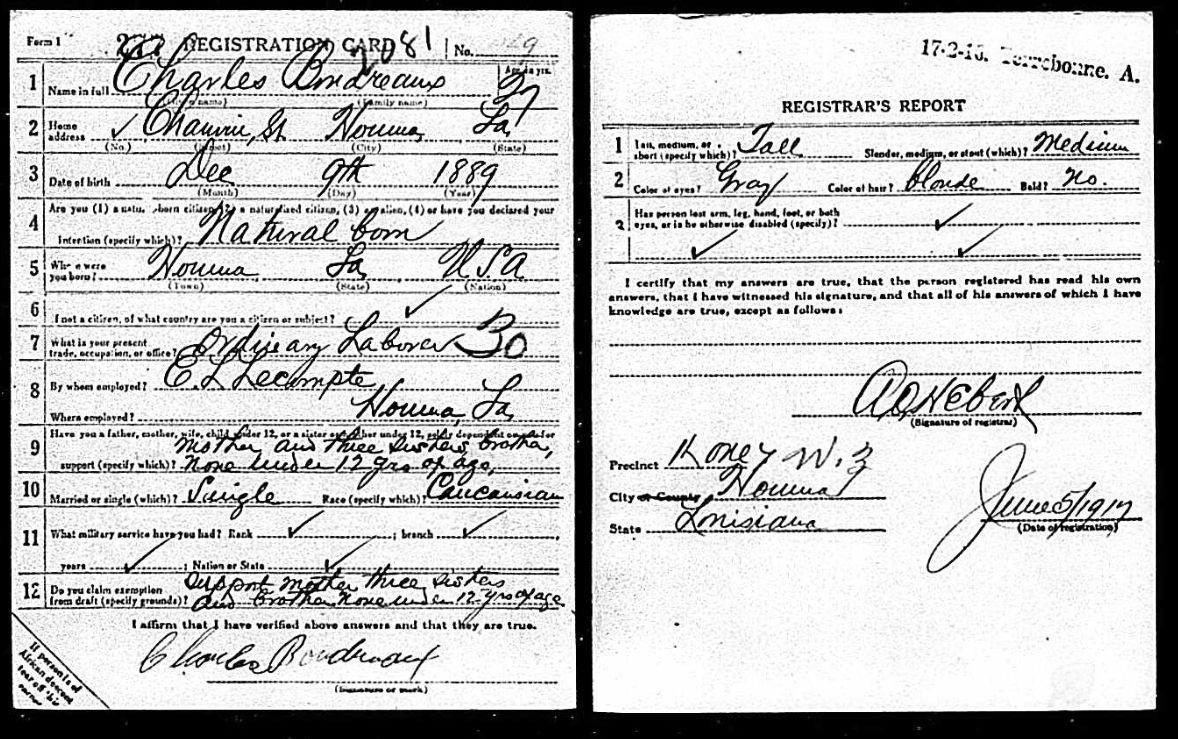 Form 1 REGISTRATION CARD 2081 No. 29
1 Name in full Charles Boudreaux Age in yrs. 27
(Given name) (Family name)
2 Home address Chauvin St. Houma, La.
(No.) (Street) (City) (State)
3 Date of birth Dec 9th 1889
(Month) (Day) (Year)
4 Are you (1) a natural-born citizen, (2) a naturalized citizen, (3) an alien, (4) or have you declared your
intention (specify which)? Natural born
5 Where were you born? Houma La. U S A
(Town) (State) (Nation)
6 If not a citizen, of what country are you a citizen or subject?
7 What is your present trade, occupation, or office? Ordinary Laborer 30
8 By whom employed? E. L Lecompte
Where employed? Houma, La.
9 Have you a father, mother, wife, child under 12, or a sister or brother under 12, solely dependent on you for
support (specify which)? Mother and three sisters, brother, none under 12 yrs of age,
10 Married or single (which)? Single Race (specify which)? Caucausian
11 What military service have you had? Rank ; branch
years ; Nation or State
12 Do you claim exemption from draft (specify grounds)? Support mother three sisters and brother none under 12 yrs of age
I affirm that I have verified above answers and that they are true.
Charles Boudreaux
(Signature or mark)
If person is of
African descent
tear off this
corner
17-2-16. Terrebonne, A.
REGISTRAR'S REPORT
1 Tall, medium, or short (specify which)? Tall Slender, medium, or stout (which)? Medium
2 Color of eyes? Gray Color of hair? blonde Bald? No.
3 Has person lost arm, leg, hand, foot, or both
eyes, or is he otherwise disabled (specify)?
I certify that my answers are true, that the person registered has read his own
answers, that I have witnessed his signature, and that all of his answers of which I have
knowledge are true, except as follows:
A O Hebert
(Signature of registrar)
Precinct W. 3
City or County Houma
State Louisiana
June 5/1917
(Date of registration)